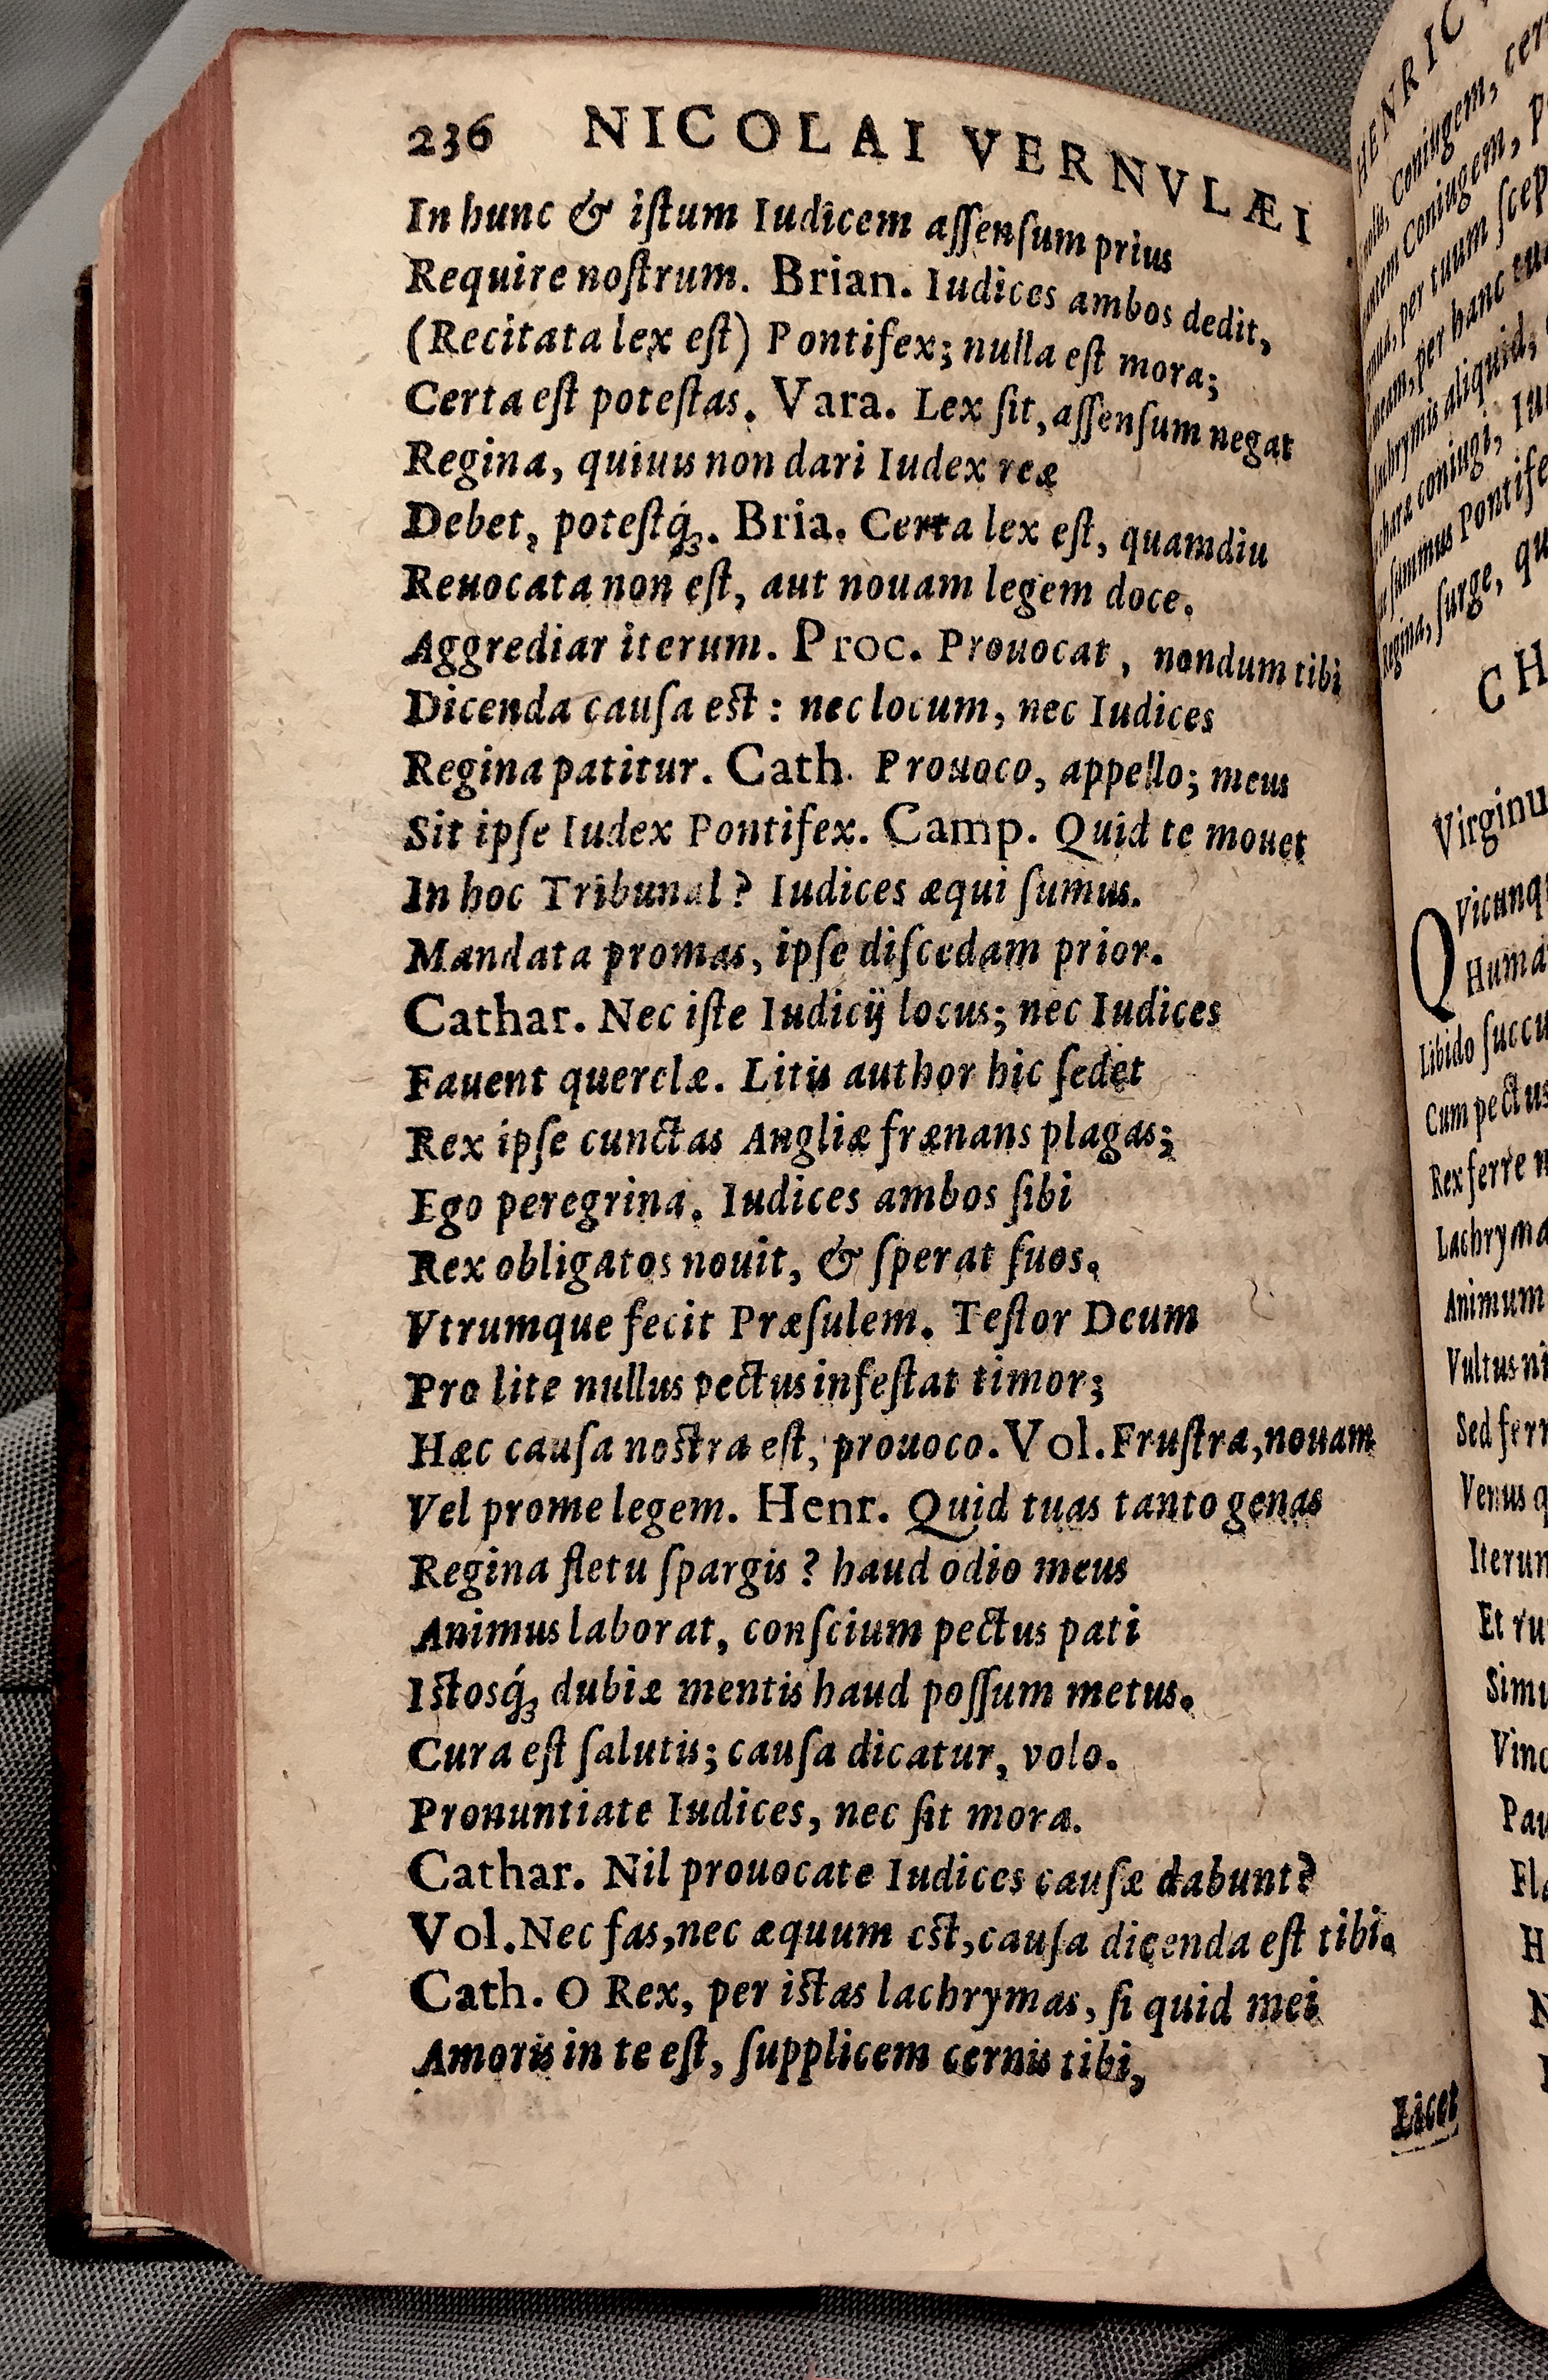 236 NICOLAI VERNVLÆI
In hunc & iſtum Iudicem aſſenſum prius
Require noſtrum. Brian. Iudices ambos dedit,
(Recitata lex eſt) Pontifex; nulla eſt mora;
Certa eſt poteſtas. Vara. Lex ſit, aſſenſum negat
Regina, quiuis non dari Iudex reæ
Debet, poteſtq́ꝫ. Bria. Certa lex eſt, quamdiu
Reuocata non eſt, aut nouam legem doce.
Aggrediar iterum. Proc. Prouocat, nondum tibi
Dicenda cauſa eſt: nec locum, nec Iudices
Regina patitur. Cath. Prouoco, appello; meus
Sit ipſe Iudex Pontifex. Camp. Quid te mouet
In hoc Tribunal? Iudices æqui ſumus.
Mandata promas, ipſe diſcedam prior.
Cathar. Nec iſte Iudicij locus; nec Iudices
Fauent querelæ. Litis author hic ſedet
Rex ipſe cunctas Angliæ frænans plagas;
Ego peregrina. Iudices ambos ſibi
Rex obligatos nouit, & ſperat ſuos.
Vtrumque fecit Præſulem. Teſtor Deum
Pro lite nullus pectus infeſtat timor;
Hæc cauſa noſtra eſt, prouoco. Vol. Fruſtra, nouam
Vel prome legem. Henr. Quid tuas tanto genas
Regina fletu ſpargis? haud odio meus
Animus laborat, conſcium pectus pati
Iſtosq́ꝫ dubiæ mentis haud poſſum metus.
Cura eſt ſalutis; cauſa dicatur, volo.
Pronuntiate Iudices, nec ſit mora.
Cathar. Nil prouocate Iudices cauſæ dabunt?
Vol. Nec fas, nec æquum eſt, cauſa dicenda eſt tibi.
Cath. O Rex, per iſtas lachrymas, ſi quid mei
Amoris in te eſt, ſupplicem cernis tibi,
Licet
HENRIC
Coniugem,
Coniugem,
per tuum
per hanc
aliquid,
coniugi,
ſummus
Regina, ſurge,
CH
Virginu
QVicunq
Huma
Libido ſuccu
Cum pectus
Rex ferre
Lachryma
Animum
Vultus ni
Sed ferr
Venus
Iterum
Et ru
Simu
Vinc
Pau
Fla
H